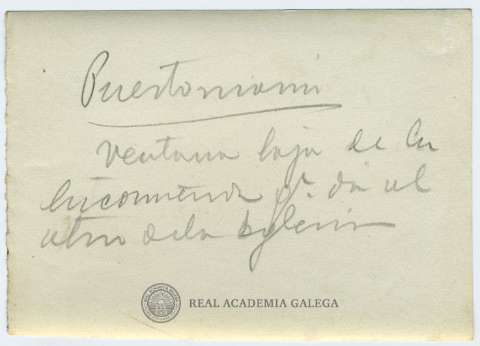 Puertomarin
Ventana baja de la
Encomienda qe. da al
atrio de la Iglesia
REAL ACADEMIA GALEGA